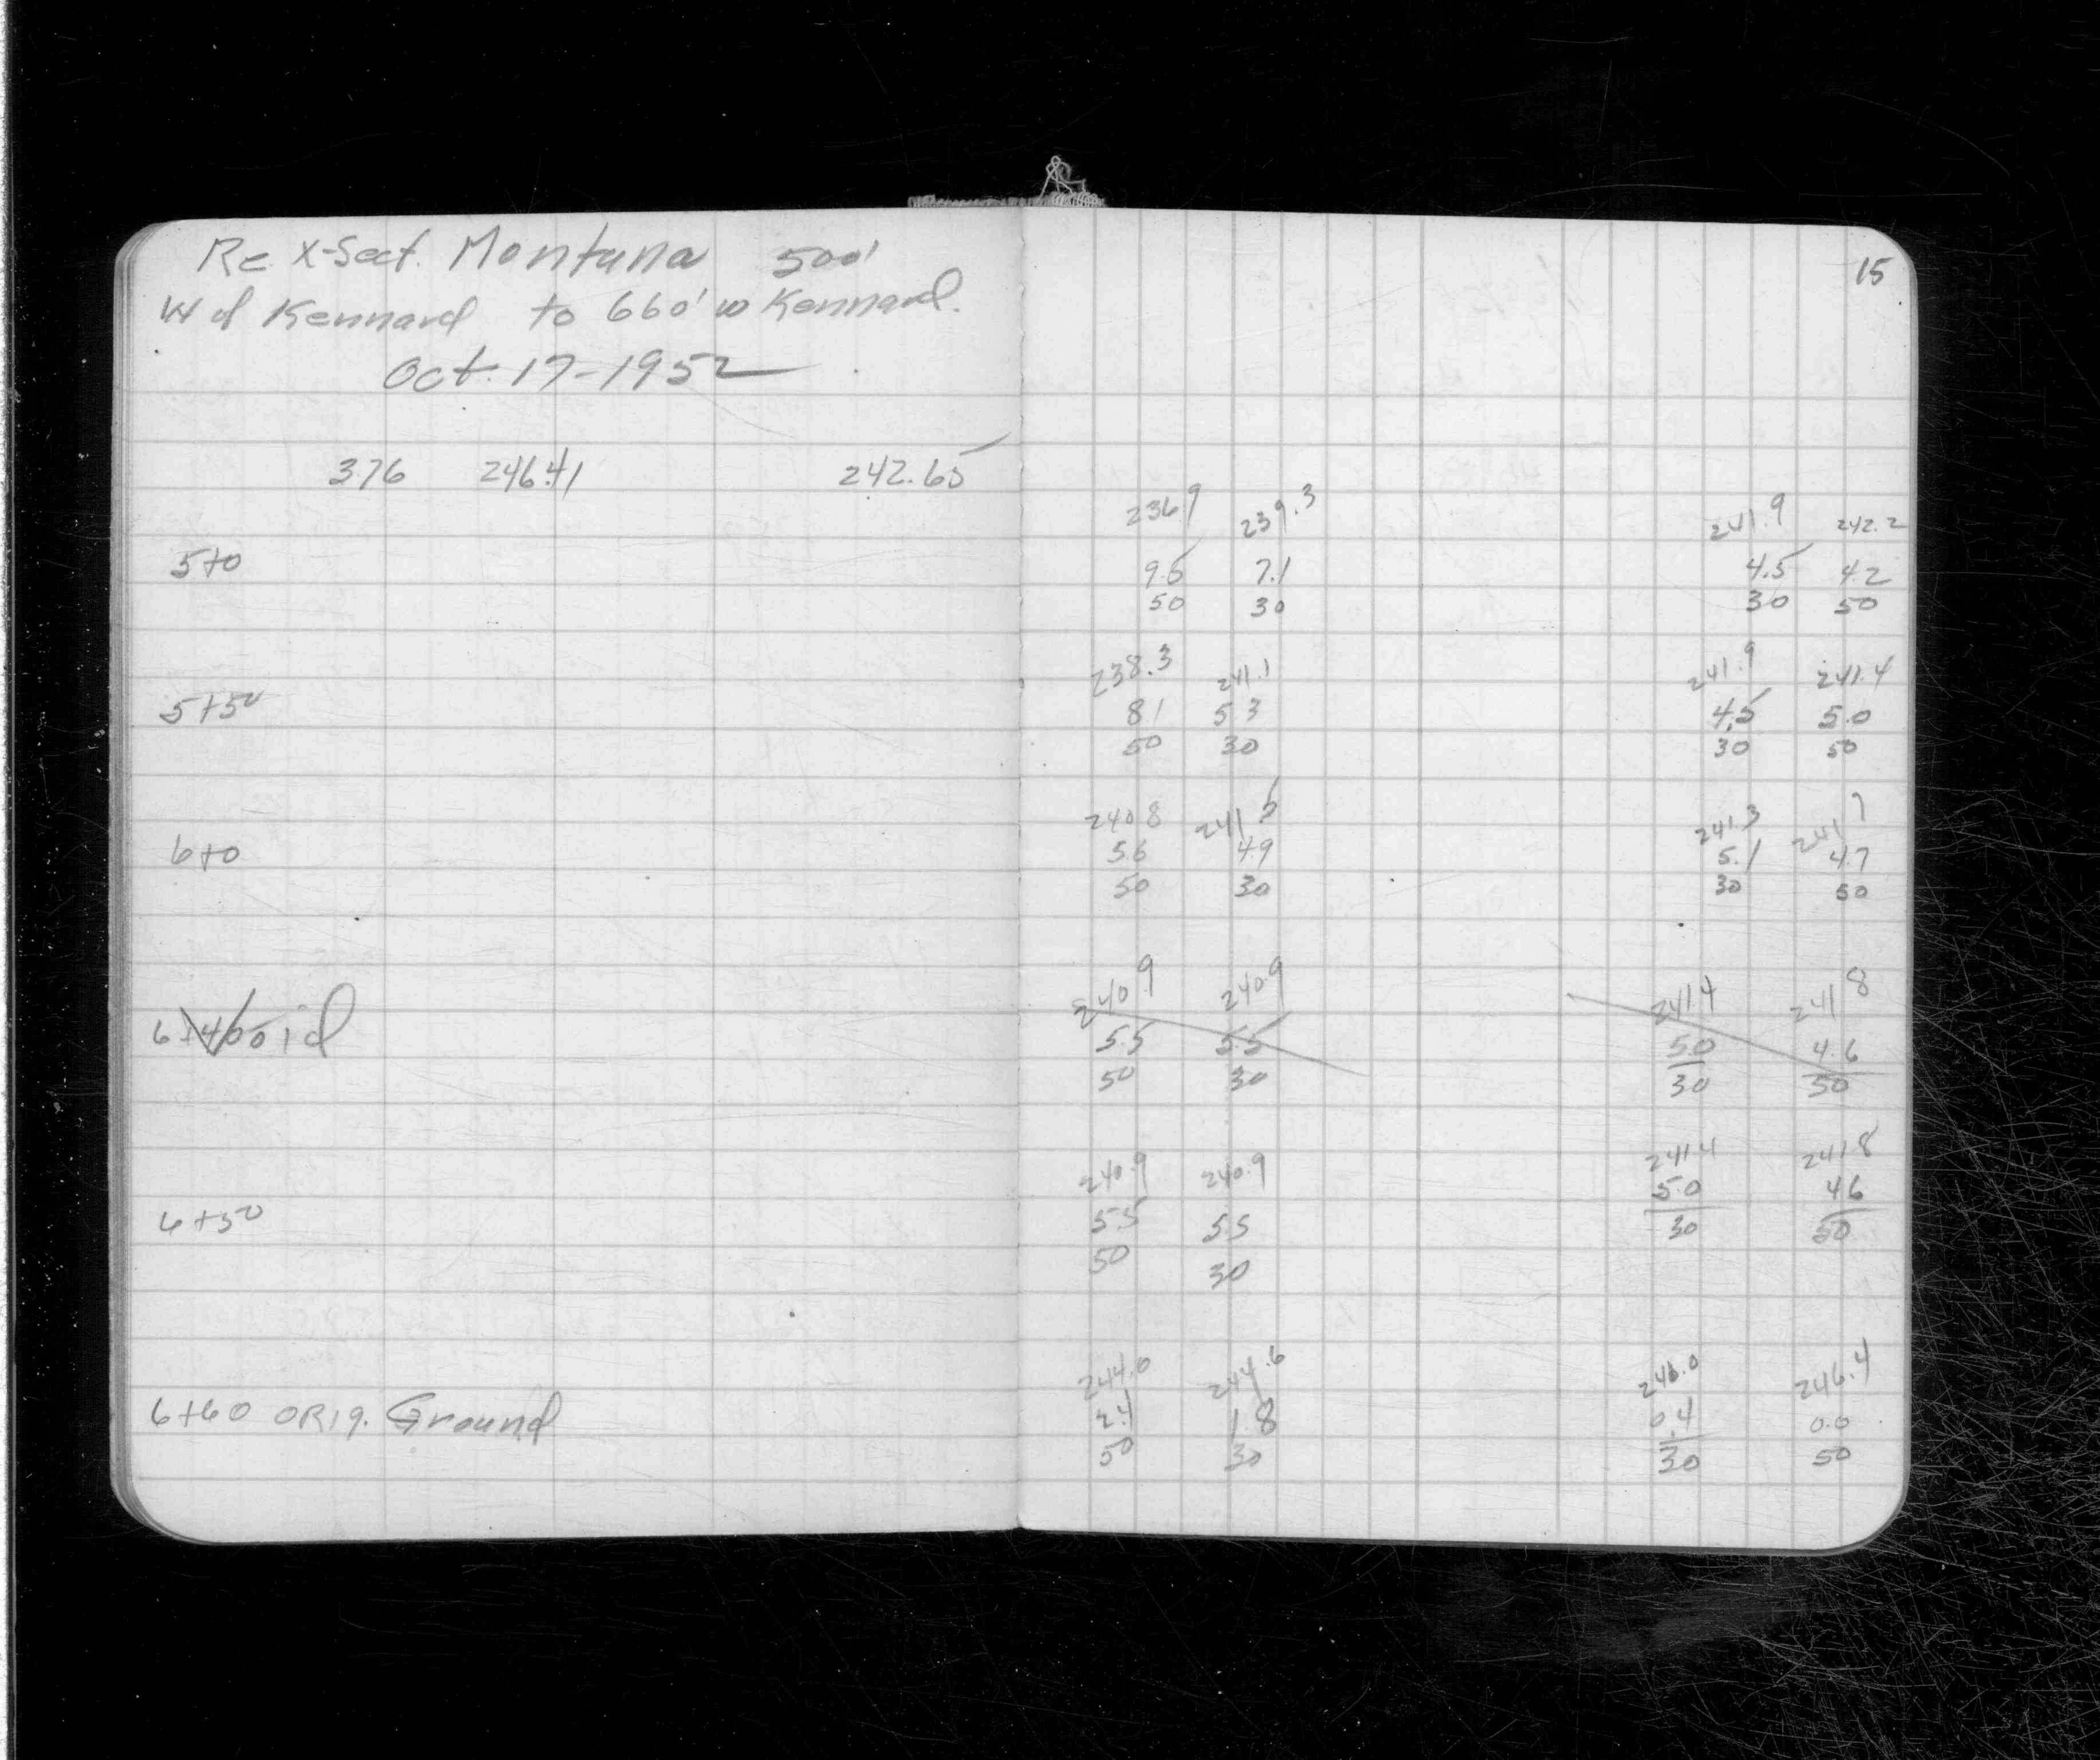 Re X-Sect. Montana 500'
W of Kennard to 660' W Kennard.
Oct. 17-1952
15
3.76 246.41 242.65
236.9 239.3 241.9 242.2
5+0 9.5 7.1 4.5 4.2
50 30 30 50
238.3 241.1 241.9 241.4
5+50 8.1 5.3 4.5 5.0
50 30 30 50
240.8 241.5 241.3 241.7
6+0 5.6 4.9 5.1 4.7
50 30 30 50
240.9 240.9 241.4 241.8
Void 5.5 5.5 5.0 4.6
50 30 30 50
240.9 240.9 241.4 241.8
6+50 5.5 5.5 5.0 4.6
50 30 30 50
244.0 244.6 246.0 246.4
6+60 ORIg. Ground 2.4 1.8 0.4 0.0
50 30 30 50